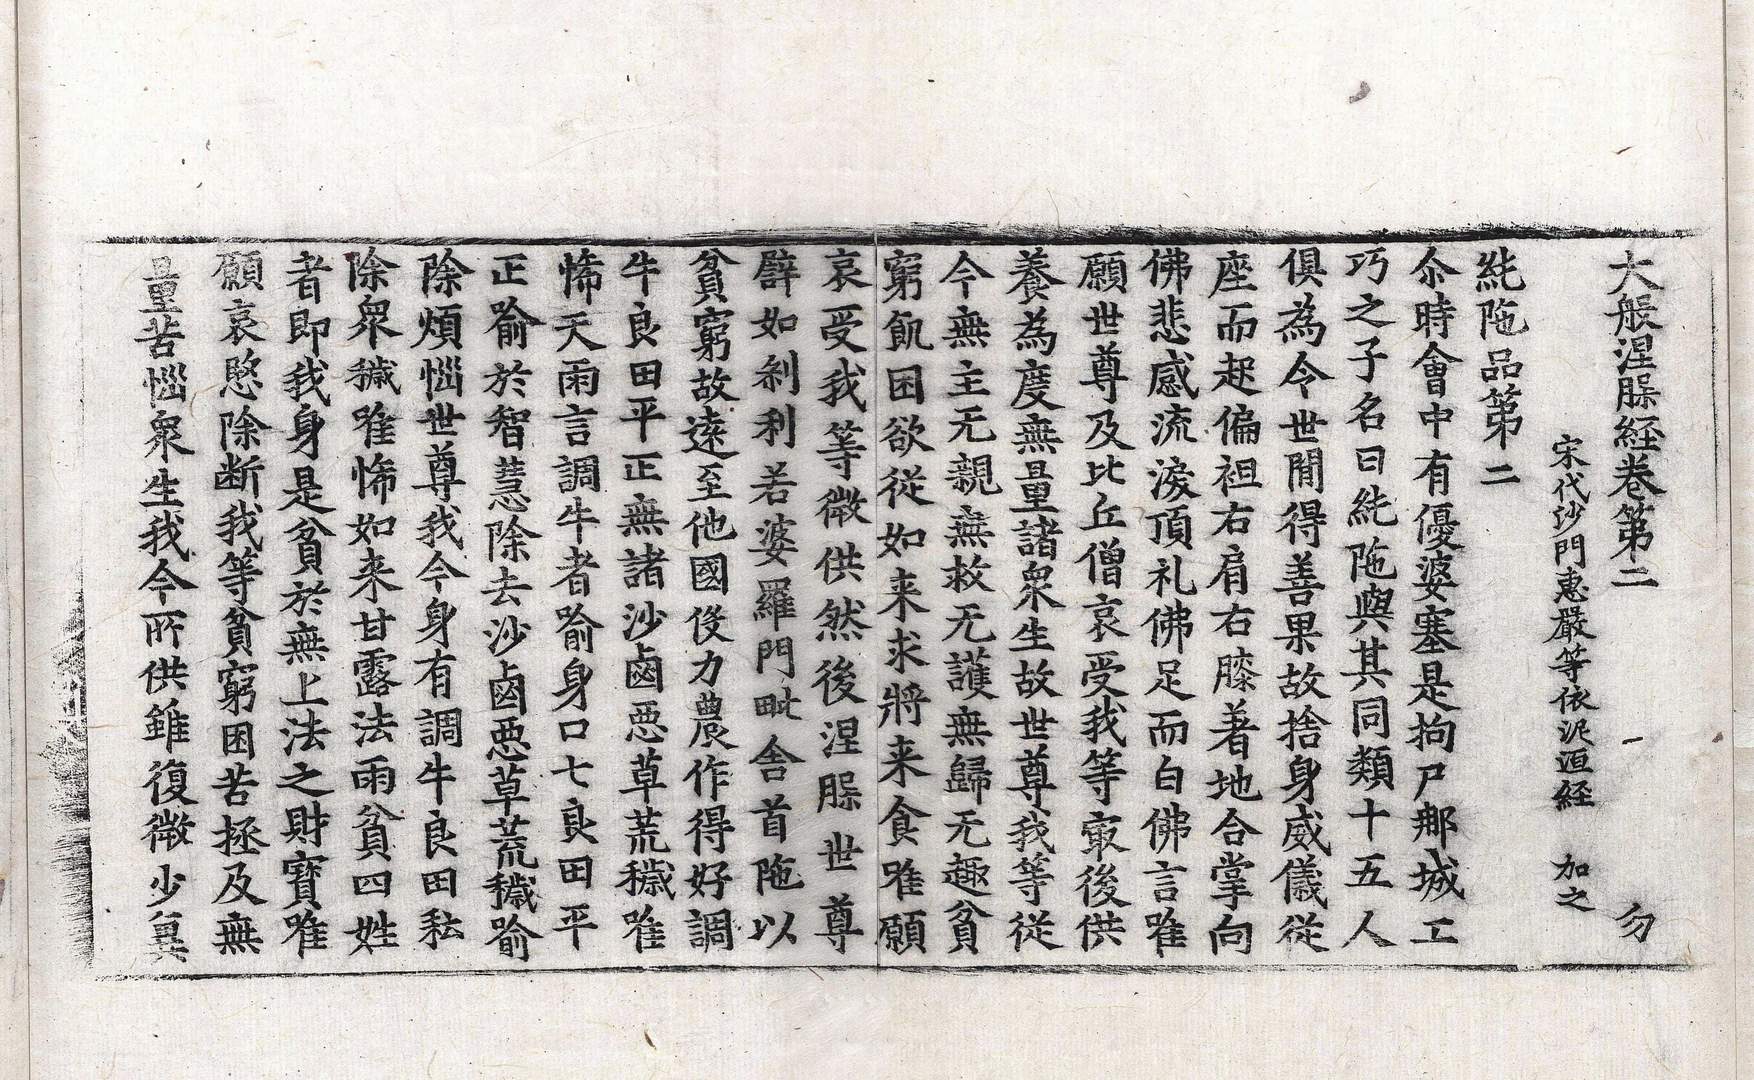 大般涅槃經卷第二 勿
宋代沙門惠嚴等依泥洹経 加之
純陁品第二
尒時會中有優婆塞是拘尸那城工
巧之子名曰純陁與其同類十五人
俱為令世間得善果故捨身威儀從
座而起偏袒右肩右膝著地合掌向
佛悲感流淚頂礼佛足而白佛言唯
願世尊及比丘僧哀受我等㝡後供
養為度無量諸衆生故世尊我等從
今無主无親無救无護無歸无趣貧
窮飢困欲從如来求將来食唯願
哀受我等微供然後涅槃世尊
譬如刹利若婆羅門毗舍首陁以
貧窮故遠至他國役力農作得好調
牛良田平正無諸沙鹵惡草荒穢唯
悕天雨言調牛者喻身口七良田平
正喻於智慧除去沙鹵惡草荒穢喻
除煩惱世尊我今身有調牛良田耘
除衆穢唯悕如来甘露法雨貧四姓
者即我身是貧於無上法之財寶唯
願哀愍除断我等貧窮困苦拯及無
量苦惱衆生我今所供雖復微少冀